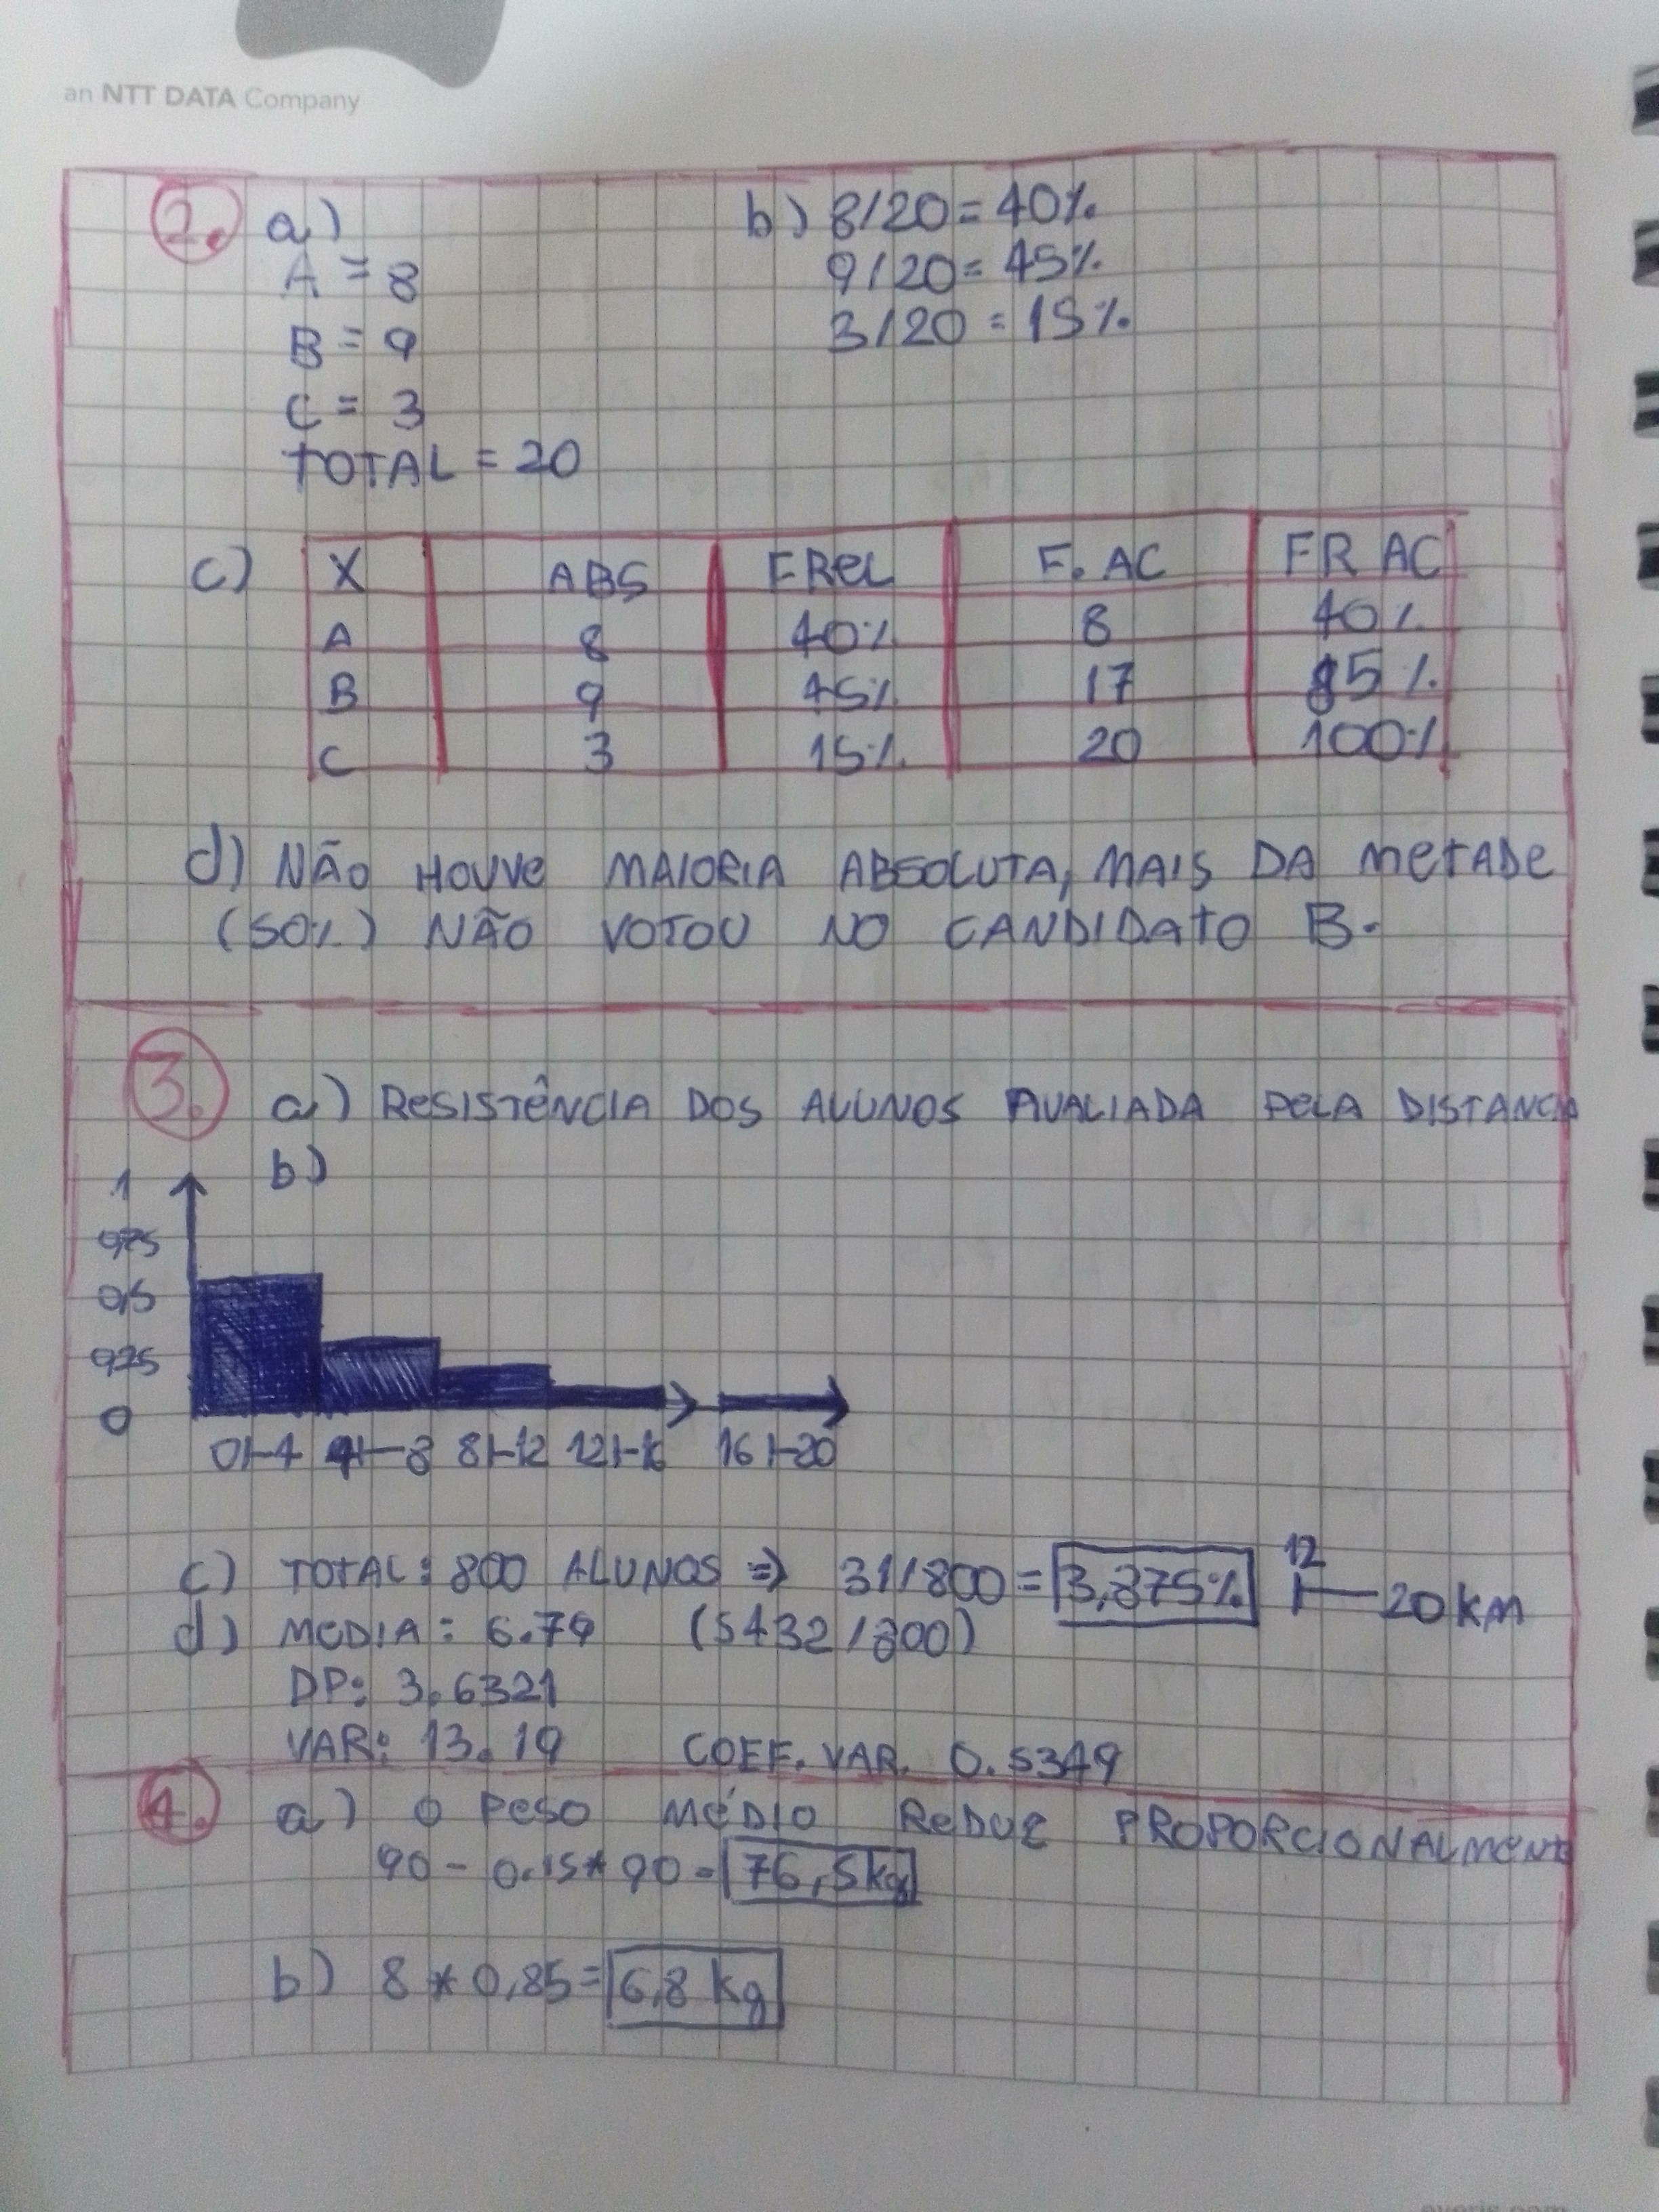 an NTT DATA Company
2. a)
A = 8
B = 9
C = 3
TOTAL = 20
b) 8/20 = 40%
9/20 = 45%
3/20 = 15%
c) X ABS FREL F. AC FR AC
A 8 40% 8 40%
B 9 45% 17 85%
C 3 15% 20 100%
d) NÃO HOUVE MAIORIA ABSOLUTA, MAIS DA METADE
(50%) NÃO VOTOU NO CANDIDATO B.
3. a) RESISTÊNCIA DOS ALUNOS AVALIADA PELA DISTANCIA
b)
1
0,75
0,5
0,25
0
0|-4 4|-8 8|-12 12|-16 16|-20
c) TOTAL: 800 ALUNOS => 31/800 = 3,875% 12 |— 20 KM
d) MEDIA: 6.79 (5432/800)
DP: 3.6321
VAR: 13.19 COEF. VAR. 0.5349
4. a) O PESO MÉDIO REDUZ PROPORCIONALMENTE
90 - 0.15*90 = 76,5kg
b) 8 * 0,85 = 6,8 kg
everis.com